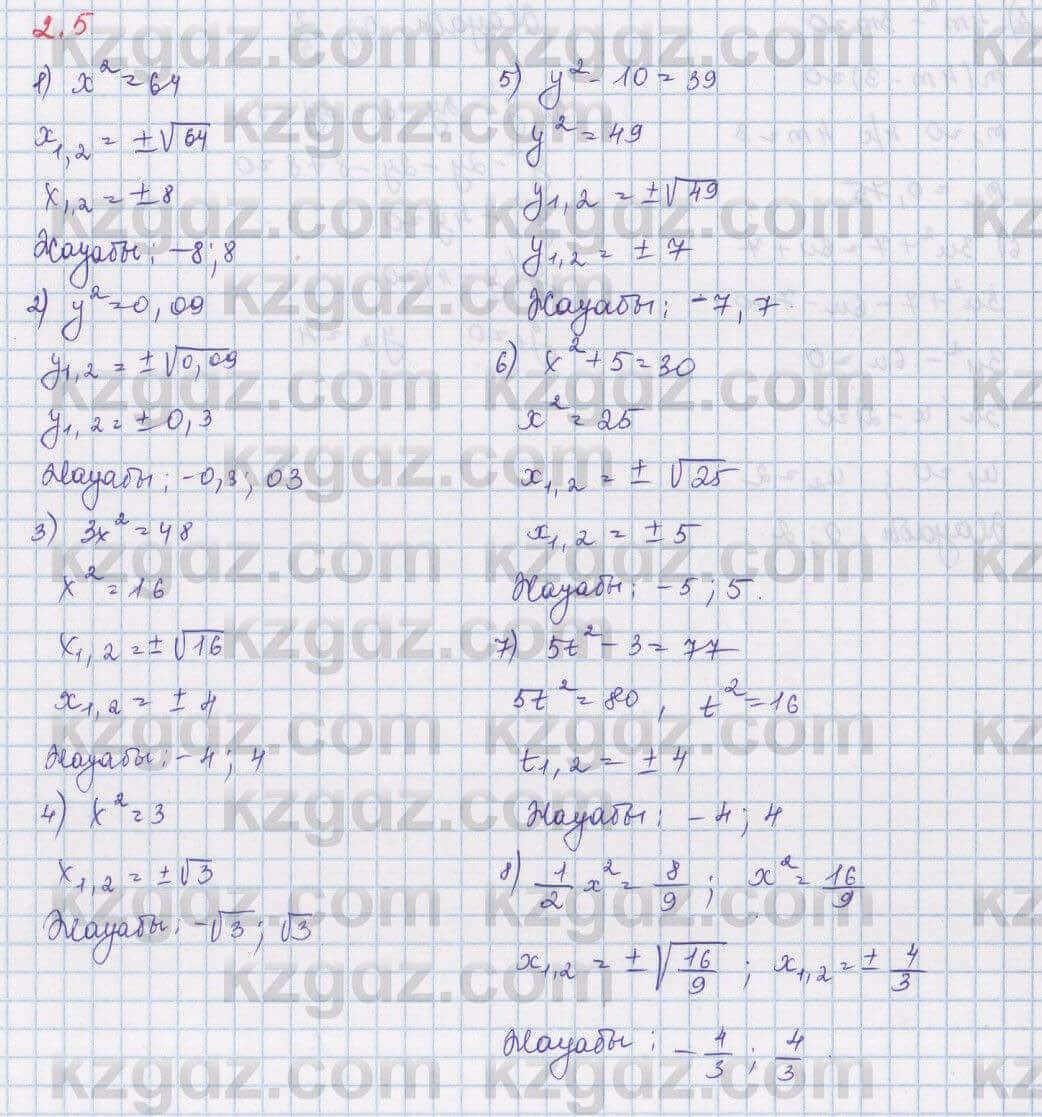 2.5
1) x² = 64
x₁,₂ = ±√64
x₁,₂ = ±8
Жауабы: -8; 8
2) y² = 0,09
y₁,₂ = ±√0,09
y₁,₂ = ±0,3
Жауабы: -0,3; 03
3) 3x² = 48
x² = 16
x₁,₂ = ±√16
x₁,₂ = ±4
Жауабы: -4; 4
4) x² = 3
x₁,₂ = ±√3
Жауабы: -√3; √3
5) y² - 10 = 39
y² = 49
y₁,₂ = ±√49
y₁,₂ = ±7
Жауабы: -7, 7.
6) x² + 5 = 30
x² = 25
x₁,₂ = ±√25
x₁,₂ = ±5
Жауабы: -5; 5.
7) 5t² - 3 = 77
5t² = 80, t² = 16
t₁,₂ = ±4
Жауабы: -4; 4
8) 1/2 x² = 8/9; x² = 16/9
x₁,₂ = ±√16/9; x₁,₂ = ±4/3
Жауабы: -4/3; 4/3.
kzgdz.com